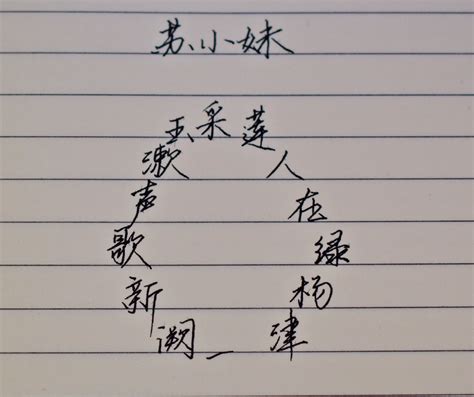 苏小妹
采莲人在绿杨津一阕新歌声漱玉